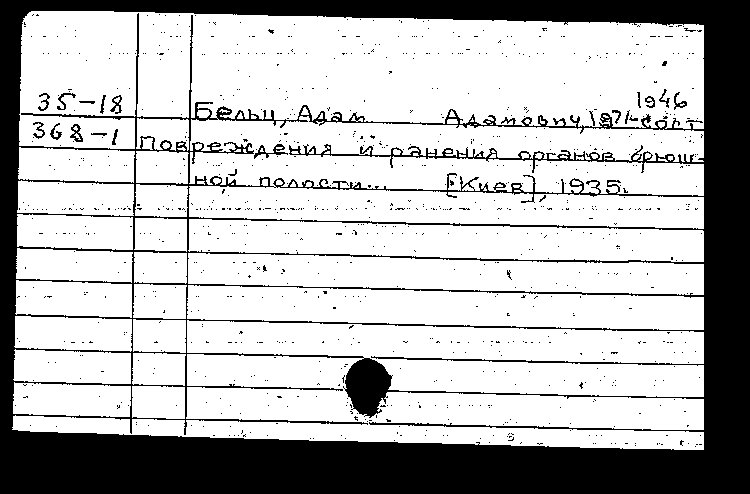 1946
35-18 Бельц, Адам Адамович, 1871- сост
368-1 Повреждения и ранения органов брюш-
ной полости... [Киев], 1935.